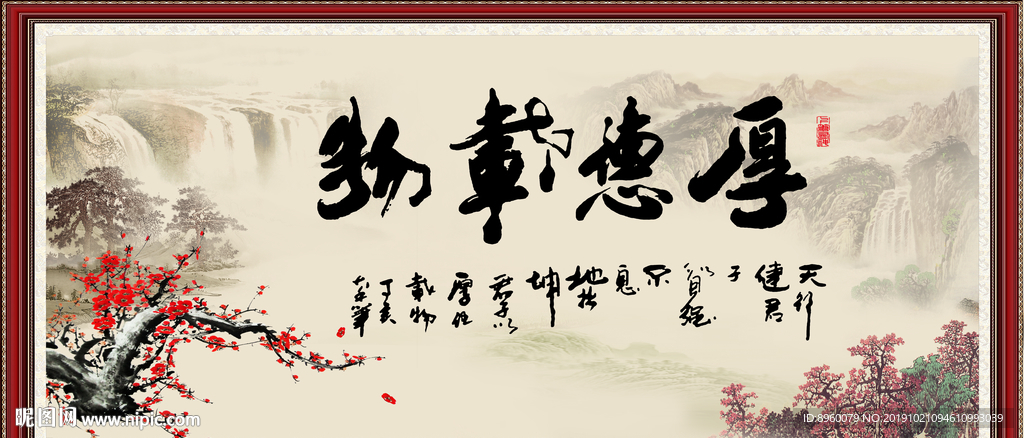 厚德載物
天行
健君
子
自強
不
息
地势
坤
君子以
厚德
載物
丁亥
昵图网 www.nipic.com
ID:8960079 NO:20191021094610993039